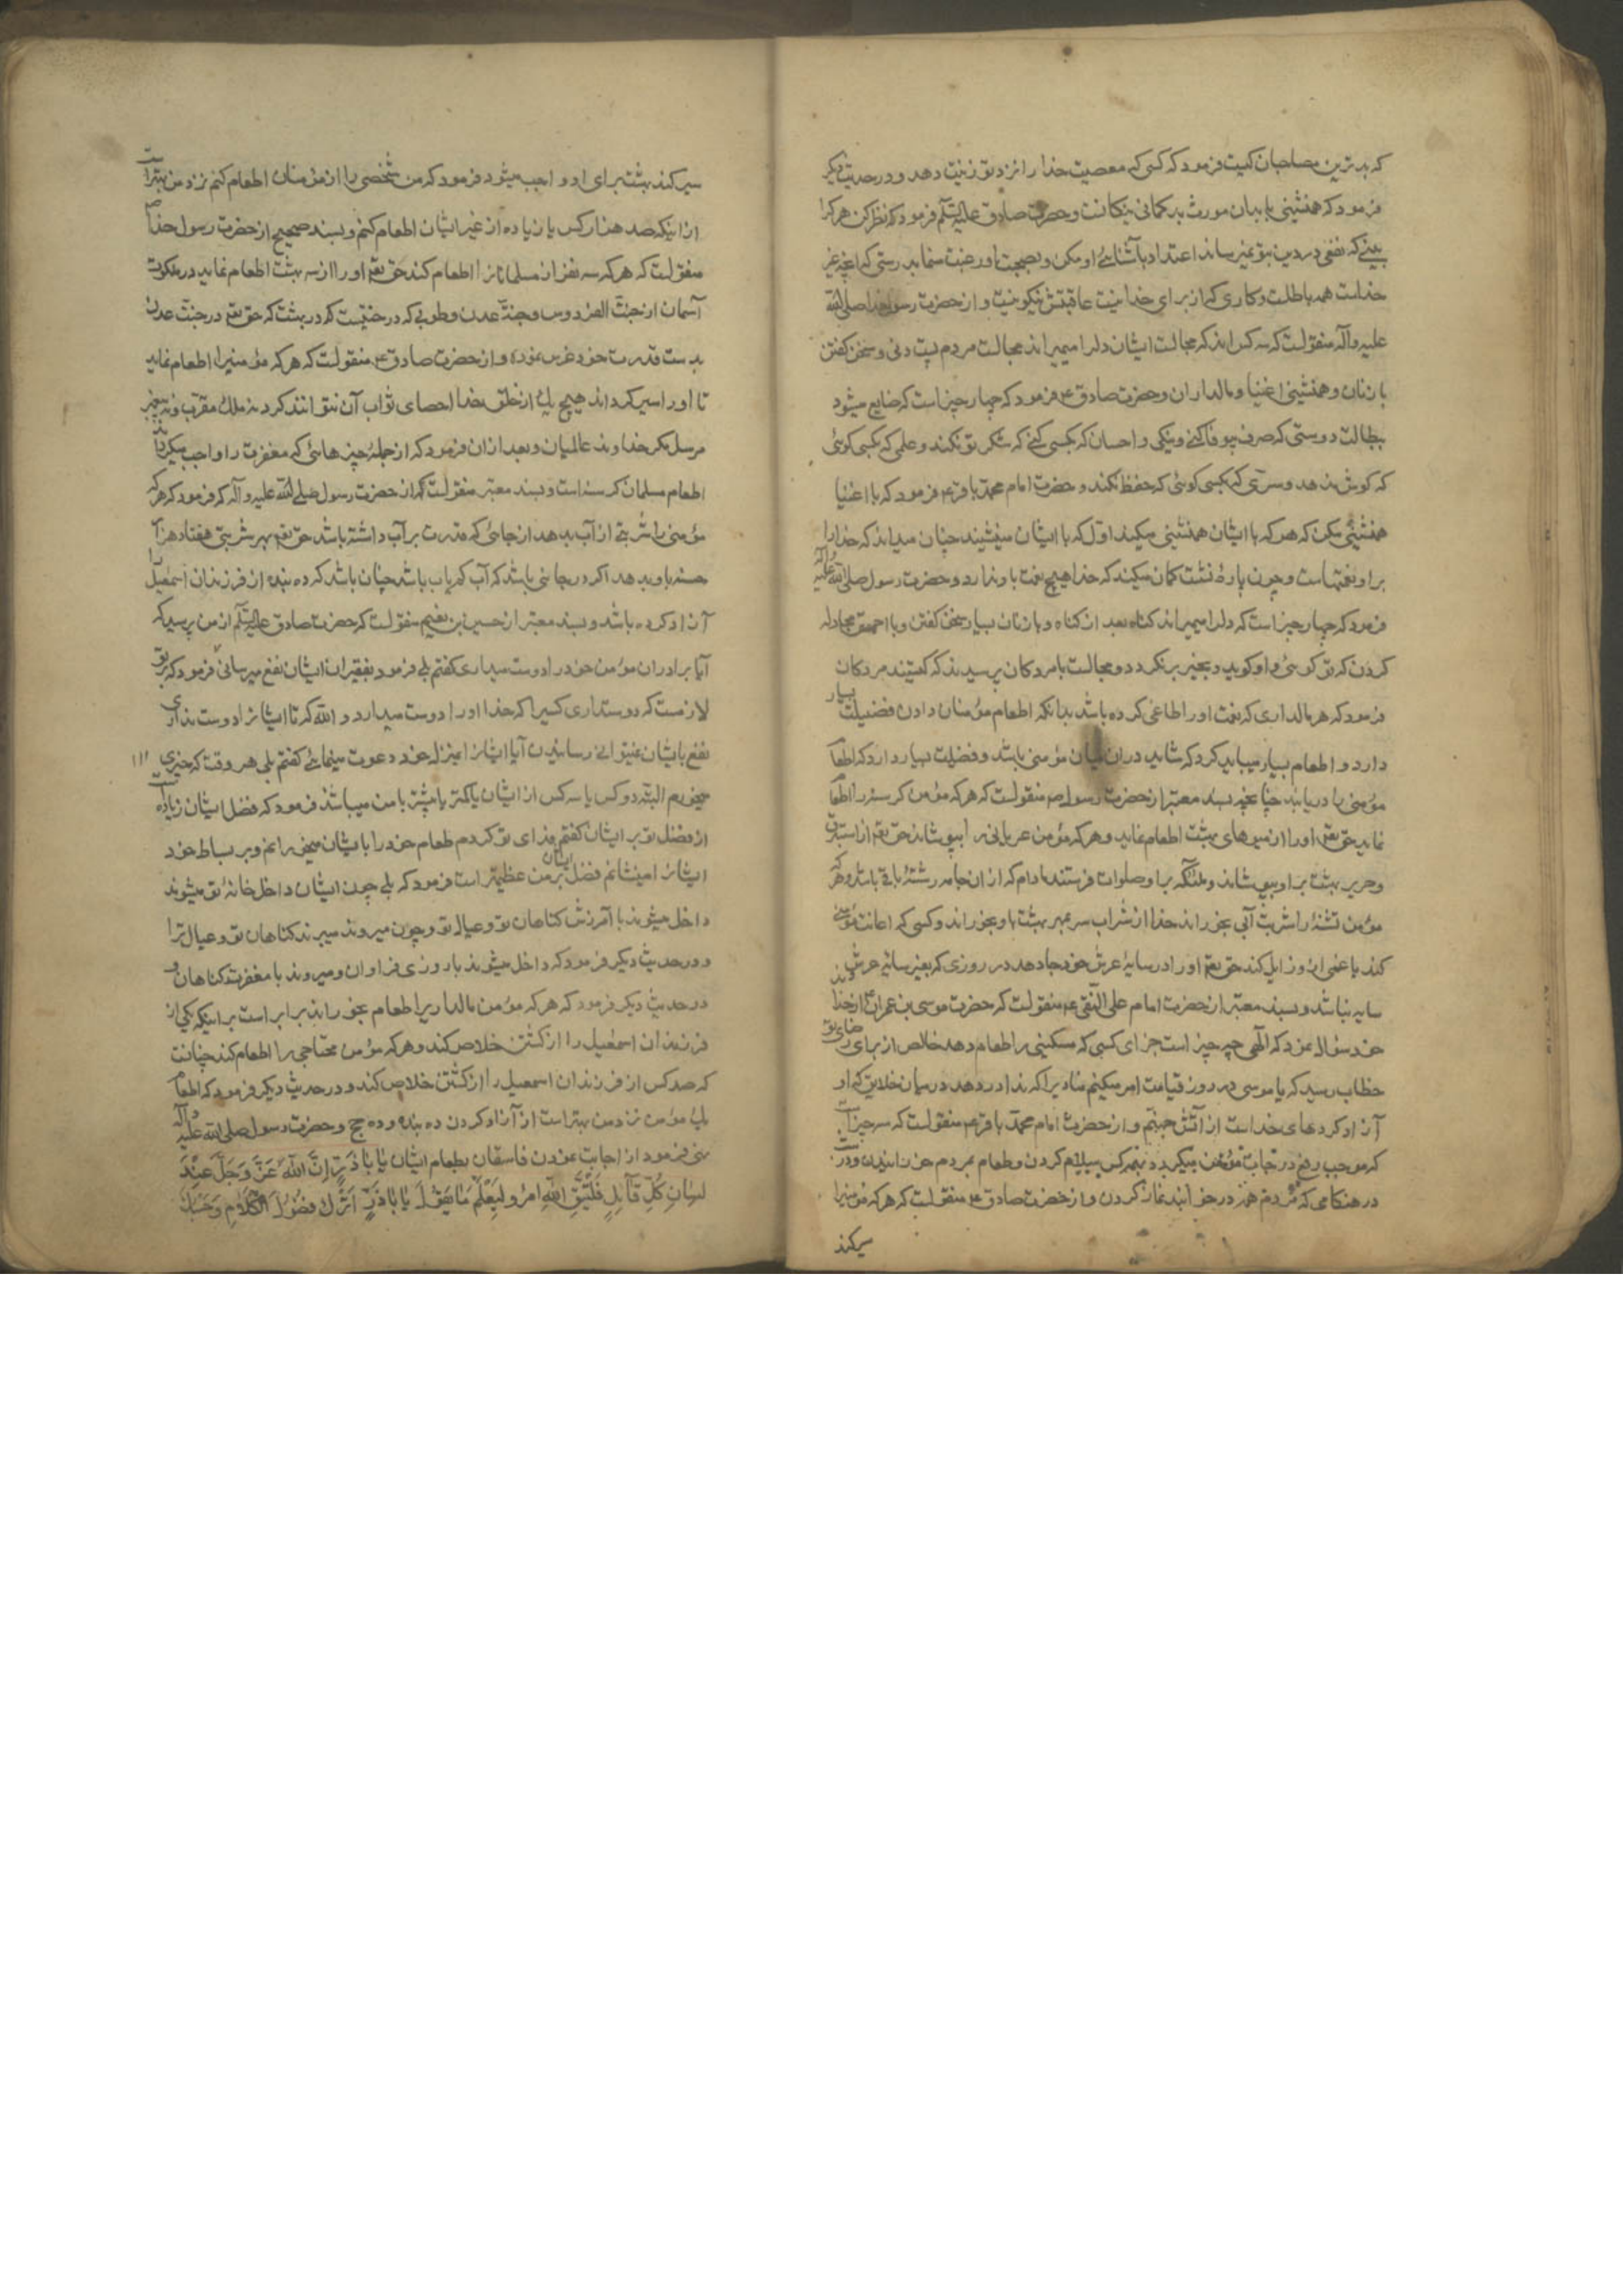 که بدترین مصاحبان کیست فرمود که کسی که معصیت خدا را نزد تو زینت دهد و در حدیث دیگر
فرمود که همنشینی با بدان مورث بدگمانی نیکانست و حضرت صادق علیه السلام فرمود که نظر کن هر که را
بینی که نفعی در دین بتو نمیرساند اعتداد بآشنائی او مکن و بصحبت او رغبت منما بدرستی که آنچه غیر
خداست همه باطلست و کاری که از برای خدا نیست عاقبتش نیکو نیست و از حضرت رسول خدا صلی الله
علیه وآله منقولست که سه کس اند که مجالست ایشان دلرا میمیراند مجالست مردم پست دنی و سخن گفتن
با زنان و همنشینی اغنیا و مالداران و حضرت صادق ع فرمود که چهار چیز است که ضایع میشود
ببطالت دوستی که صرف بیوفا کنی و نیکی و احسان که بکسی کنی که شکر تو نکند و علمی که بکسی گوئی
که گوش ندهد و سرّی که بکسی گوئی که حفظ نکند و حضرت امام محمد باقر ع فرمود که با اغنیا
همنشینی مکن که هر که با ایشان همنشینی میکند اول که با ایشان مینشیند چنان میداند که خدا را
بر او نعمتهاست و چون پاره نشست گمان میکند که خدا هیچ نعمت باو ندارد و حضرت رسول صلی الله علیه وآله
فرمود که چهار چیز است که دلرا میمیراند گناه بعد از گناه و با زنان بسیار سخن گفتن و با احمق مجادله
کردن که تو گوئی و او گوید و بخیر برنگردد و مجالست با مردگان پرسیدند که کیستند مردگان
فرمود که هر مالداری که نعمت او را طاغی کرده باشد بدانکه اطعام مؤمنان دادن فضیلت بسیار
دارد و اطعام بسیار میباید کرد که شاید در آن میان مؤمنی باشد و فضیلت بسیار دارد که اطعام
مؤمنی را دریابد چنانچه بسند معتبر از حضرت رسول ص منقولست که هر که مؤمن گرسنه را اطعام
نماید حق تعم او را از میوهای بهشت اطعام نماید و هر که مؤمن عریانی را بپوشاند حق تعم از استبرق
و حریر بهشت بر او بپوشاند و ملئکه بر او صلوات فرستند مادام که از ان جامه رشتۀ باقی باشد و هر که
مؤمن تشنۀ را شربت آبی بخوراند خدا از شراب سر بمهر بهشت باو بخوراند و کسی که اعانت مؤمنی
کند یا غمی ازو زایل کند حق تعم او را در سایۀ عرش خود جا دهد در روزی که بغیر سایۀ عرش
سایه نباشد و بسند معتبر از حضرت امام علی النقی ع منقولست که حضرت موسی بن عمران از خداوند
خود سؤال نمود که الهی چه چیز است جزای کسی که مسکینی را طعام دهد خالص از برای رضای تو
خطاب رسید که یا موسی در روز قیامت امر میکنم منادیرا که ندا در دهد در میان خلایق که او
آزاد کردهای خداست از آتش جهنم و از حضرت امام محمد باقر ع منقولست که سه چیز است
که موجب رفع درجات مؤمن میگردد بهر کس سلام کردن و طعام بمردم خورانیدن و در
در هنگامی که مردم در خوابند نماز کردن و از حضرت صادق ع منقولست که هر که مؤمنیرا
سیر کند
سیر کند بهشت برای او واجب میشود فرمود که من شخصی را از مؤمنان اطعام کنم نزد من بهتر است
از اینکه صد هزار کس یا زیاده از غیر ایشان اطعام کنم و بسند صحیح از حضرت رسول خدا ص
منقولست که هر که سه نفر از مسلمانانرا اطعام کند حق تعم او را از سه بهشت اطعام نماید در ملکوت
آسمان از جنت الفردوس و جنة عدن و طوبی که درختیست که در بهشت که حق تعم در جنت عدن
بدست قدرت خود غرس نموده و از حضرت صادق ع منقولست که هر که مؤمنیرا اطعام نماید
تا او را سیر گرداند هیچ یک از خلق خدا احصای ثواب آن نتوانند کرد نه ملک مقرب و نه پیغمبر
مرسل مگر خداوند عالمیان و بعد از ان فرمود که از جمله چیزهائی که مغفرت را واجب میگرداند
اطعام مسلمان گرسنه است و بسند معتبر منقولست که از حضرت رسول صلی الله علیه وآله که فرمود که هر که
مؤمنی را شربتی از آب بدهد از جائی که قدرت بر آب داشته باشد حق تعم بهر شربتی هفتاد هزار
حسنه باو بدهد اگر در جائی باشد که آب کم یاب باشد چنان باشد که ده بنده از فرزندان اسمعیل را
آزاد کرده باشد و بسند معتبر از حسین بن نعیم منقولست که حضرت صادق علیه السلام از من پرسید که
آیا برادران مؤمن خود را دوست میداری گفتم بلی فرمود بفقیران ایشان نفع میرسانی فرمود که بر تو
لازمست که دوستداری کسیرا که خدا او را دوست میدارد و الله که تا ایشانرا دوست نداری
نفع بایشان نمیتوانی رسانیدن آیا ایشانرا بمنزل خود دعوت مینمائی گفتم بلی هر وقت که چیزی ۱۱۱
میخورم البته دو کس یا سه کس از ایشان یا کمتر یا بیشتر با من میباشند فرمود که فضل ایشان زیاده است
از فضل تو بر ایشان گفتم فدای تو گردم طعام خود را بایشان میخورانم و بر بساط خود
ایشانرا مینشانم فضل ایشان بر من عظیمتر است فرمود که بلی چون ایشان داخل خانۀ تو میشوند
داخل میشوند با آمرزش گناهان تو و عیال تو و چون میروند میبرند گناهان تو و عیال ترا
و در حدیث دیگر فرمود که داخل میشوند با روزی فراوان و میروند با مغفرت گناهان و
در حدیث دیگر فرمود که هر که مؤمن مالداریرا طعام بخوراند برابر است بر اینکه یکی از
فرزندان اسمعیل را از کشتن خلاص کند و هر که مؤمن محتاجی را اطعام کند چنانست
که صد کس از فرزندان اسمعیل را از کشتن خلاص کند و در حدیث دیگر فرمود که اطعام
یک مؤمن نزد من بهتر است از آزاد کردن ده بنده و ده حج و حضرت رسول صلی الله علیه وآله
نهی فرمود از اجابت نمودن فاسقان بطعام ایشان یَا بَا ذَرٍّ اِنَّ اللهَ عَزَّ وَجَلَّ عِنْدَ
لِسَانِ كُلِّ قَآئِلٍ فَلْيَتَّقِ اللهَ امْرُؤٌ وَلْيَعْلَمْ مَا يَقُولُ يَا بَا ذَرٍّ اُتْرُكْ فُضُولَ الْكَلَامِ وَحَسْبُكَ